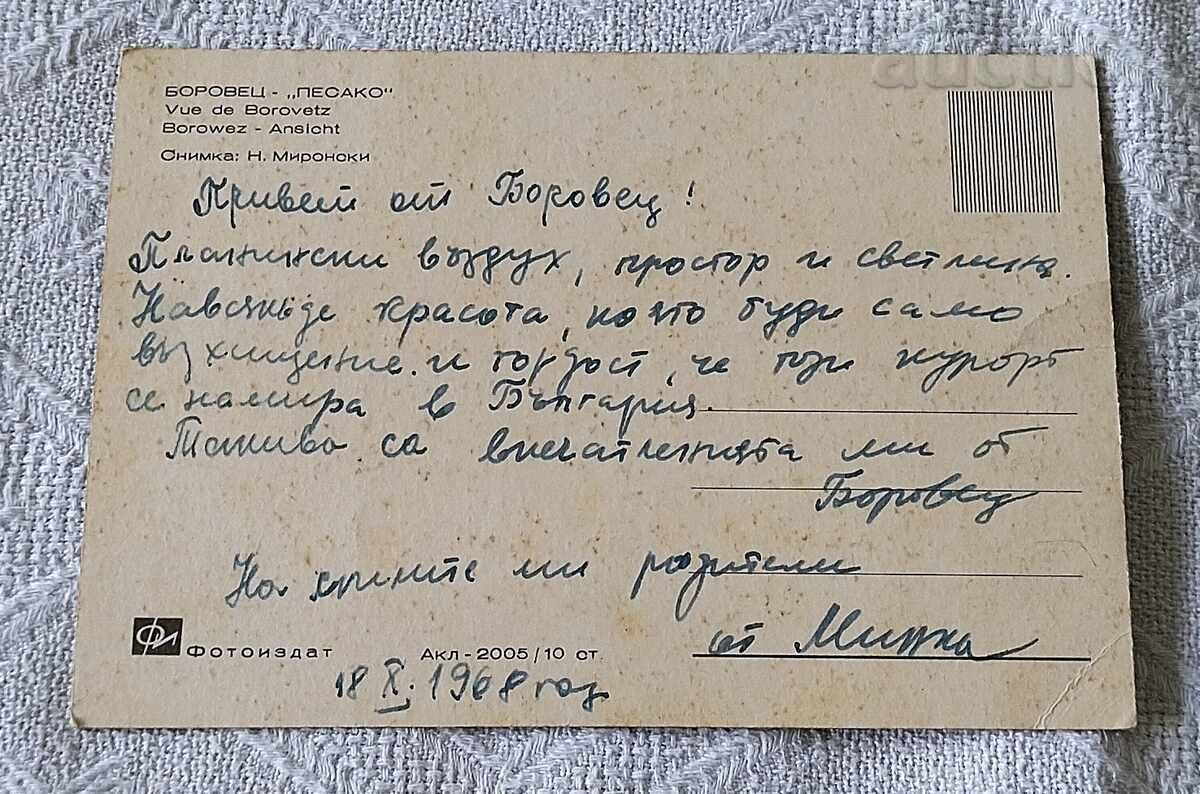 БОРОВЕЦ - „ПЕСАКО"
Vue de Borovetz
Borowez - Ansicht
Снимка: Н. Миронски
Привет от Боровец!
Планински въздух, простор и светлина.
Навсякъде красота, която буди само
възхищение и гордост, че този курорт
се намира в България.
Такива са впечатленията ми от
Боровец
На милите ми родители
от Минка
Фотоиздат
Акл-2005/10 ст.
18 X. 1968 год